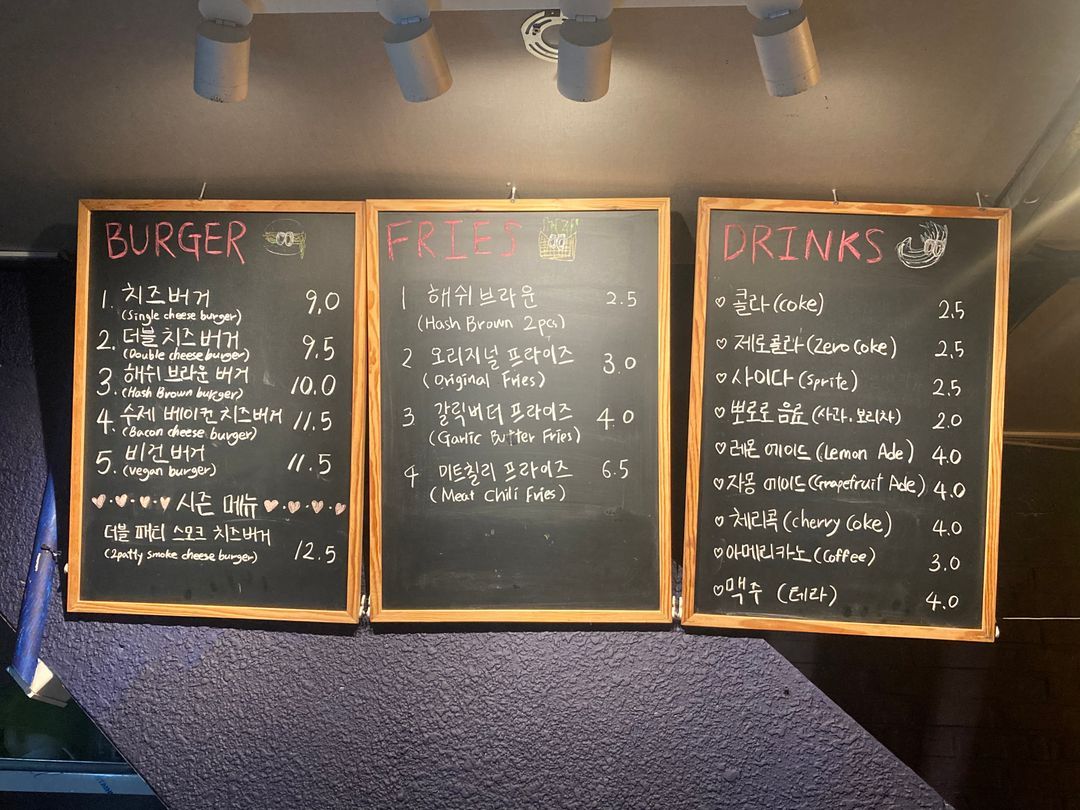 BURGER
1. 치즈버거 9.0
(Single cheese burger)
2. 더블 치즈버거 9.5
(Double cheese burger)
3. 해쉬 브라운 버거 10.0
(Hash Brown burger)
4. 수제 베이컨 치즈버거 11.5
(Bacon cheese burger)
5. 비건 버거 11.5
(vegan burger)
시즌 메뉴
더블 패티 스모크 치즈버거 12.5
(2patty smoke cheese burger)
FRIES
1 해쉬 브라운 2.5
(Hash Brown 2pcs)
2 오리지널 프라이즈 3.0
(Original Fries)
3 갈릭버터 프라이즈 4.0
(Garlic Butter Fries)
4 미트칠리 프라이즈 6.5
(Meat Chili Fries)
DRINKS
♡ 콜라 (coke) 2.5
♡ 제로콜라 (Zero Coke) 2.5
♡ 사이다 (Sprite) 2.5
♡ 뽀로로 음료 (사과, 보리차) 2.0
♡ 레몬 에이드 (Lemon Ade) 4.0
♡ 자몽 에이드 (Grapefruit Ade) 4.0
♡ 체리콕 (cherry Coke) 4.0
♡ 아메리카노 (Coffee) 3.0
♡ 맥주 (테라) 4.0